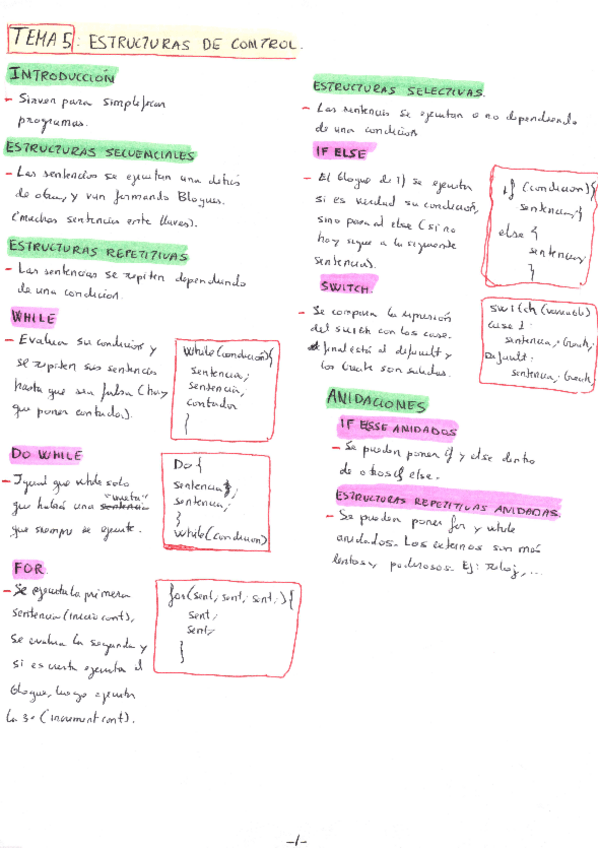 TEMA 5: ESTRUCTURAS DE CONTROL.
INTRODUCCIÓN
- Sirven para simplificar
programas.
ESTRUCTURAS SECUENCIALES
- Las sentencias se ejecutan una detrás
de otra, y van formando Bloques.
(muchas sentencias entre llaves).
ESTRUCTURAS REPETITIVAS
- Las sentencias se repiten dependiendo
de una condicion.
WHILE
- Evaluan su condicion y
se repiten sus sentencias
hasta que sea falsa (hay
que poner contador).
while(condición){
sentencia;
sentencia;
contador
}
DO WHILE
- Igual que while solo
que habrá una "vuelta"
que siempre se ejecute.
Do {
sentencia;
sentencia;
}
while(condicion)
FOR
- Se ejecuta la primera
sentencia (inicio cont),
se evalua la segunda y
si es cierta ejecuta el
bloque, luego ejecuta
la 3ª (increment cont).
for(sent, sent, sent,){
sent;
sent;
}
ESTRUCTURAS SELECTIVAS.
- Las sentencias se ejecutan o no dependiendo
de una condicion
IF ELSE
- El bloque de if se ejecuta
si es verdad su condición,
sino pasa al else (si no
hay sigue a la siguiente
sentencia).
if (condicion){
sentencias}
else {
sentencias;
}
SWITCH.
- Se compara la expresión
del switch con los case.
Al final está el default y
los break son salidas.
switch (variable)
case 1:
sentencia; break;
Default:
sentencia; break
ANIDACIONES
IF ESSE ANIDADOS
- Se pueden poner if y else dentro
de otros if else.
ESTRUCTURAS REPETITIVAS ANIDADAS.
- Se pueden poner for y while
anidados. Los externos son más
lentos y poderosos. Ej: reloj, ...
-1-